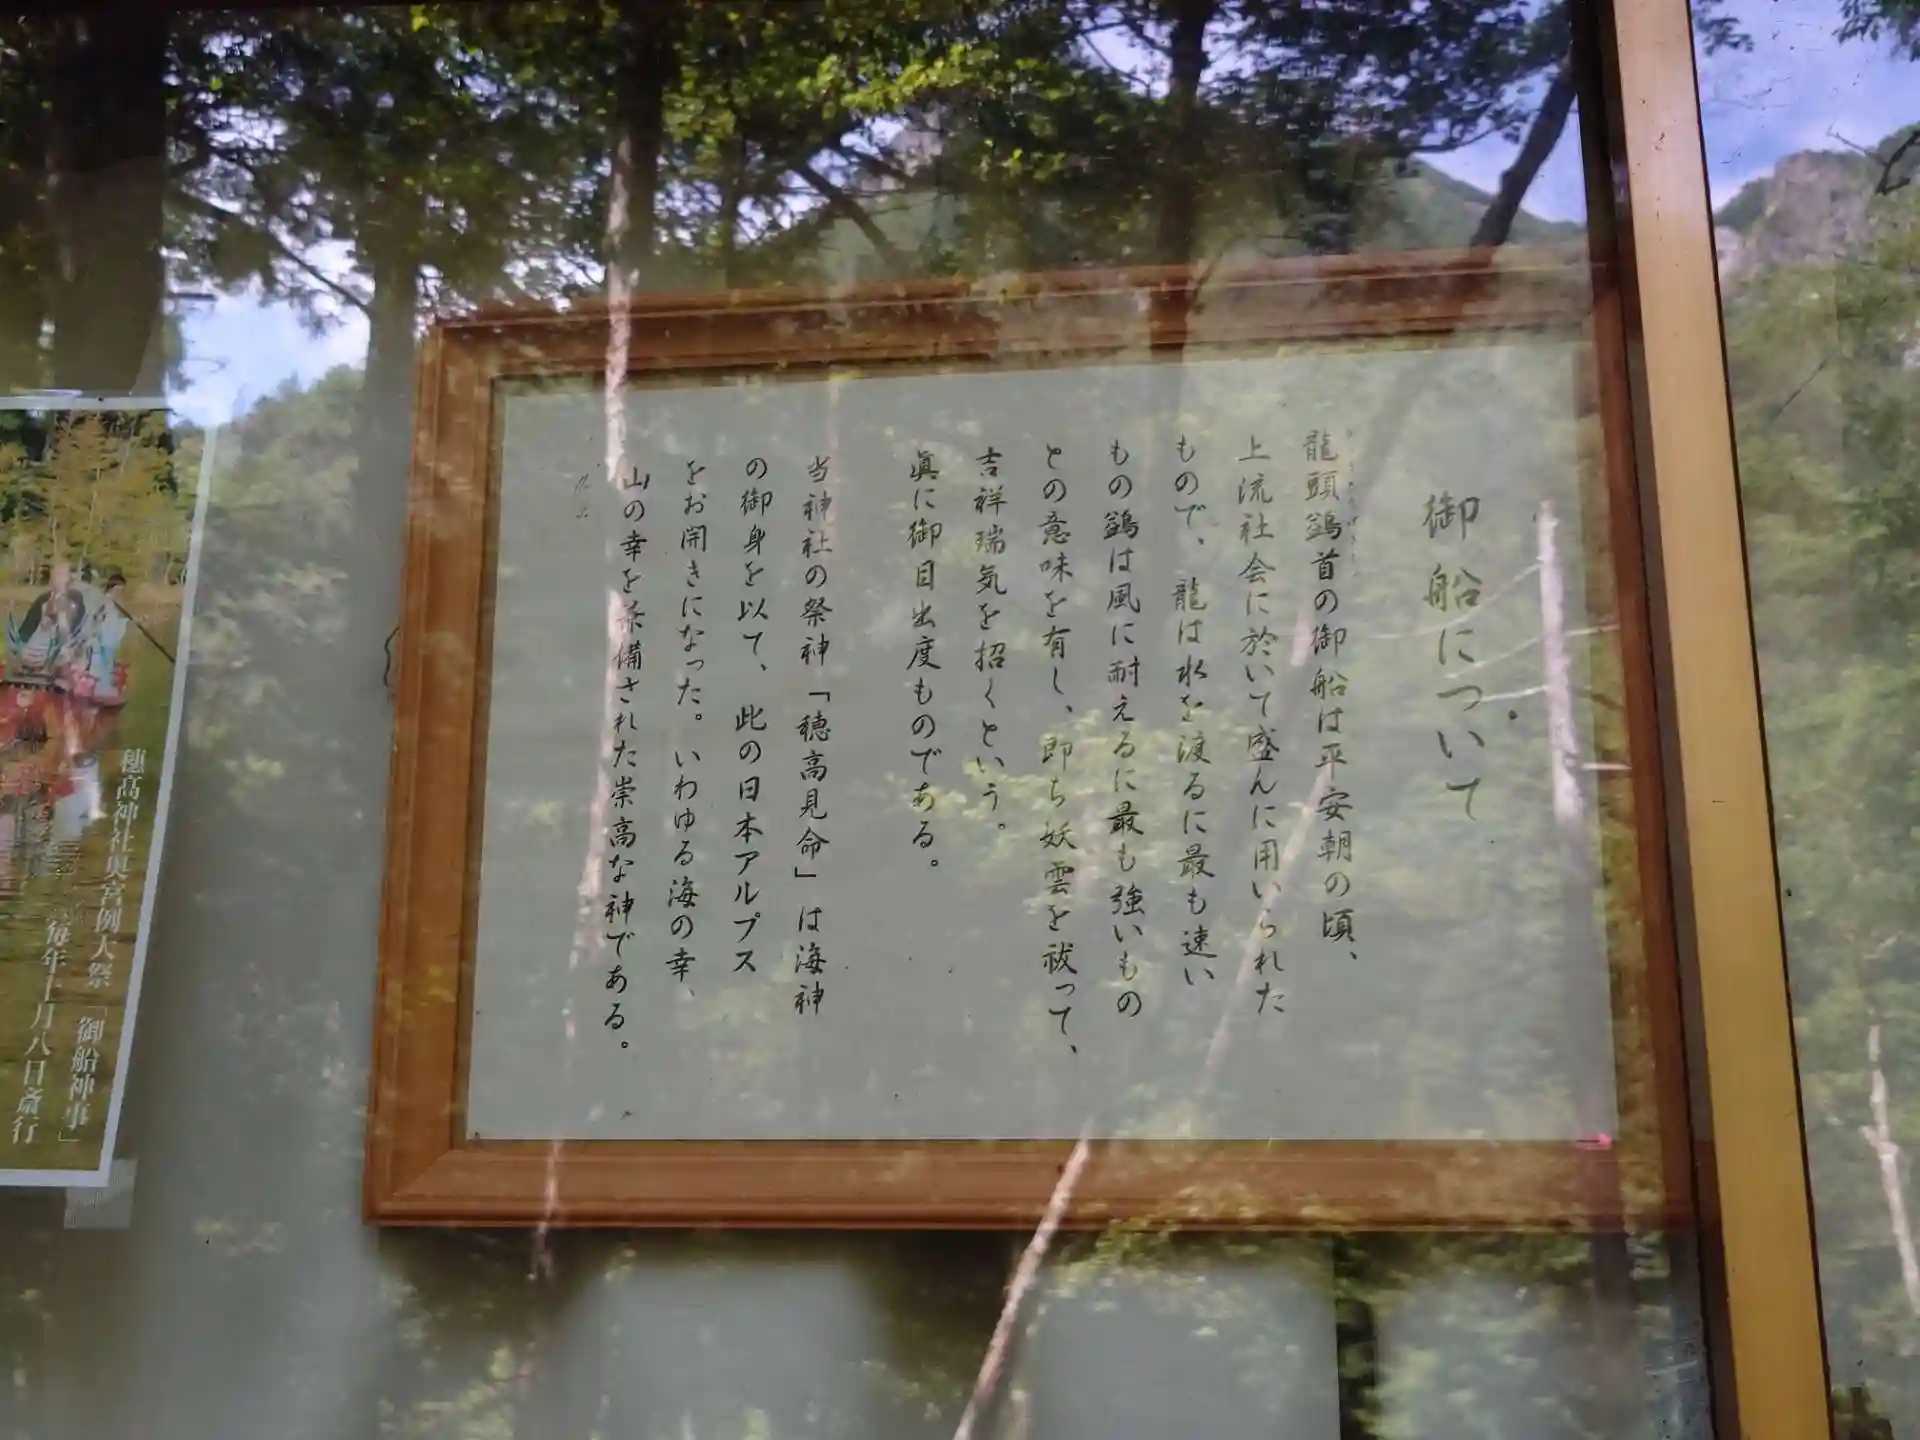 御船について
龍頭鷁首の御船は平安朝の頃、
上流社会に於いて盛んに用いられた
もので、龍は水を渡るに最も速い
もの鷁は風に耐えるに最も強いもの
との意味を有し、即ち妖雲を祓って、
吉祥瑞気を招くという。
眞に御目出度ものである。
当神社の祭神「穂高見命」は海神
の御身を以て、此の日本アルプス
をお開きになった。いわゆる海の幸、
山の幸を兼備された崇高な神である。
穂髙神社奥宮例大祭「御船神事」
毎年十月八日斎行